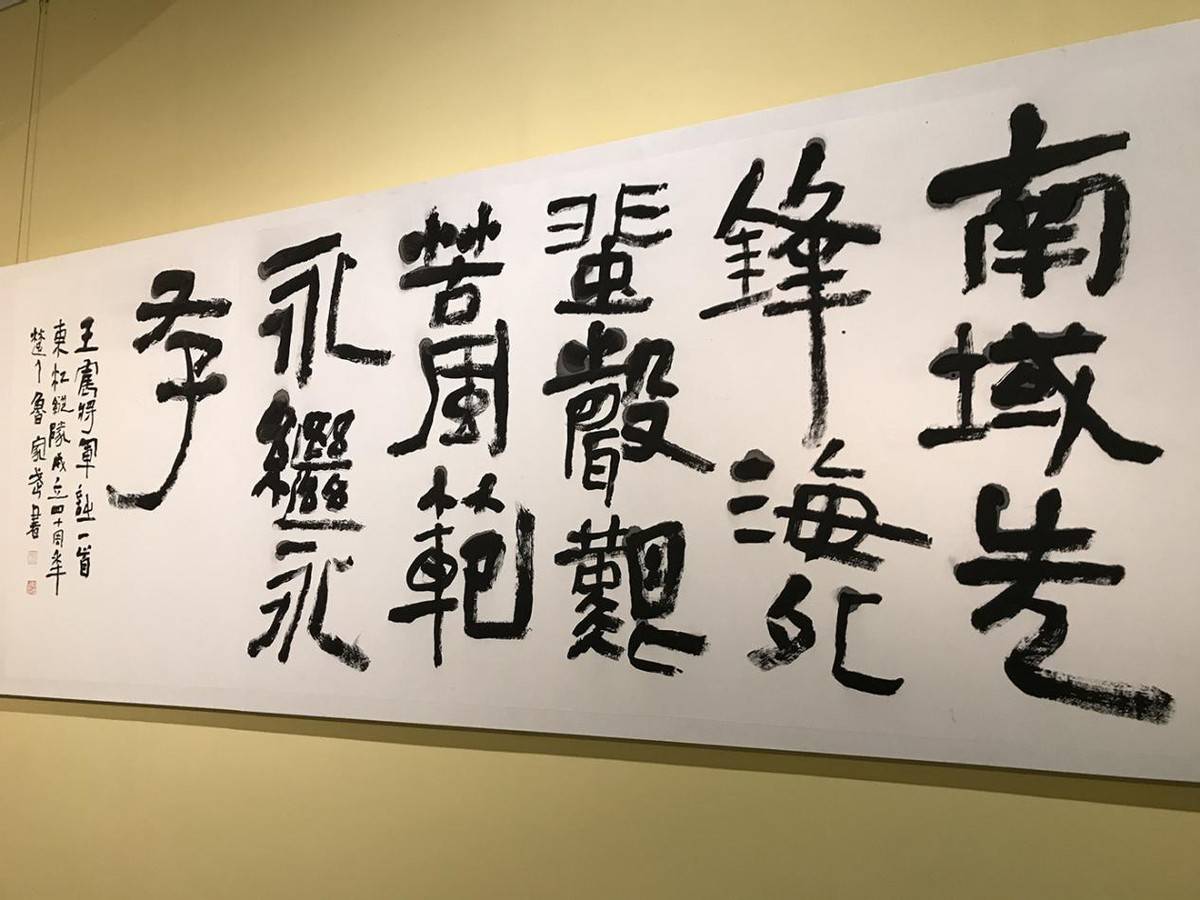 南域先
鋒海外
蜚聲艱
苦風範
永繼永
存
王震將軍詩一首
東江縱隊成立四十周年
楚人魯家書